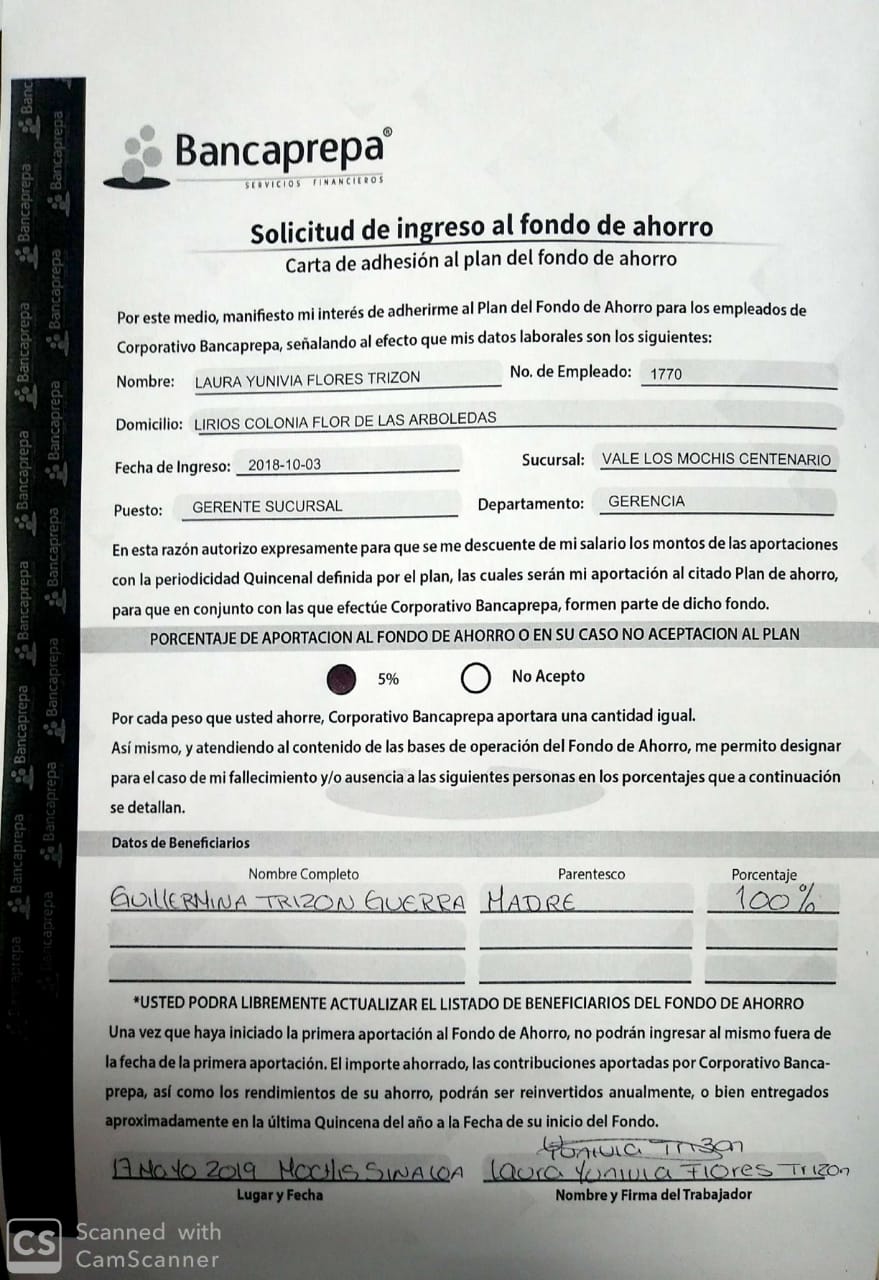 Bancaprepa®
SERVICIOS FINANCIEROS
Solicitud de ingreso al fondo de ahorro
Carta de adhesión al plan del fondo de ahorro
Por este medio, manifiesto mi interés de adherirme al Plan del Fondo de Ahorro para los empleados de
Corporativo Bancaprepa, señalando al efecto que mis datos laborales son los siguientes:
Nombre: LAURA YUNIVIA FLORES TRIZON No. de Empleado: 1770
Domicilio: LIRIOS COLONIA FLOR DE LAS ARBOLEDAS
Fecha de Ingreso: 2018-10-03 Sucursal: VALE LOS MOCHIS CENTENARIO
Puesto: GERENTE SUCURSAL Departamento: GERENCIA
En esta razón autorizo expresamente para que se me descuente de mi salario los montos de las aportaciones
con la periodicidad Quincenal definida por el plan, las cuales serán mi aportación al citado Plan de ahorro,
para que en conjunto con las que efectúe Corporativo Bancaprepa, formen parte de dicho fondo.
PORCENTAJE DE APORTACION AL FONDO DE AHORRO O EN SU CASO NO ACEPTACION AL PLAN
5% No Acepto
Por cada peso que usted ahorre, Corporativo Bancaprepa aportara una cantidad igual.
Así mismo, y atendiendo al contenido de las bases de operación del Fondo de Ahorro, me permito designar
para el caso de mi fallecimiento y/o ausencia a las siguientes personas en los porcentajes que a continuación
se detallan.
Datos de Beneficiarios
Nombre Completo Parentesco Porcentaje
GUILLERMINA TRIZON GUERRA MADRE 100%
*USTED PODRA LIBREMENTE ACTUALIZAR EL LISTADO DE BENEFICIARIOS DEL FONDO DE AHORRO
Una vez que haya iniciado la primera aportación al Fondo de Ahorro, no podrán ingresar al mismo fuera de
la fecha de la primera aportación. El importe ahorrado, las contribuciones aportadas por Corporativo Banca-
prepa, así como los rendimientos de su ahorro, podrán ser reinvertidos anualmente, o bien entregados
aproximadamente en la última Quincena del año a la Fecha de su inicio del Fondo.
Yunivia Trizon
17 Mayo 2019 Mochis SINALOA Laura Yunivia Flores Trizon
Lugar y Fecha Nombre y Firma del Trabajador
CS Scanned with
CamScanner